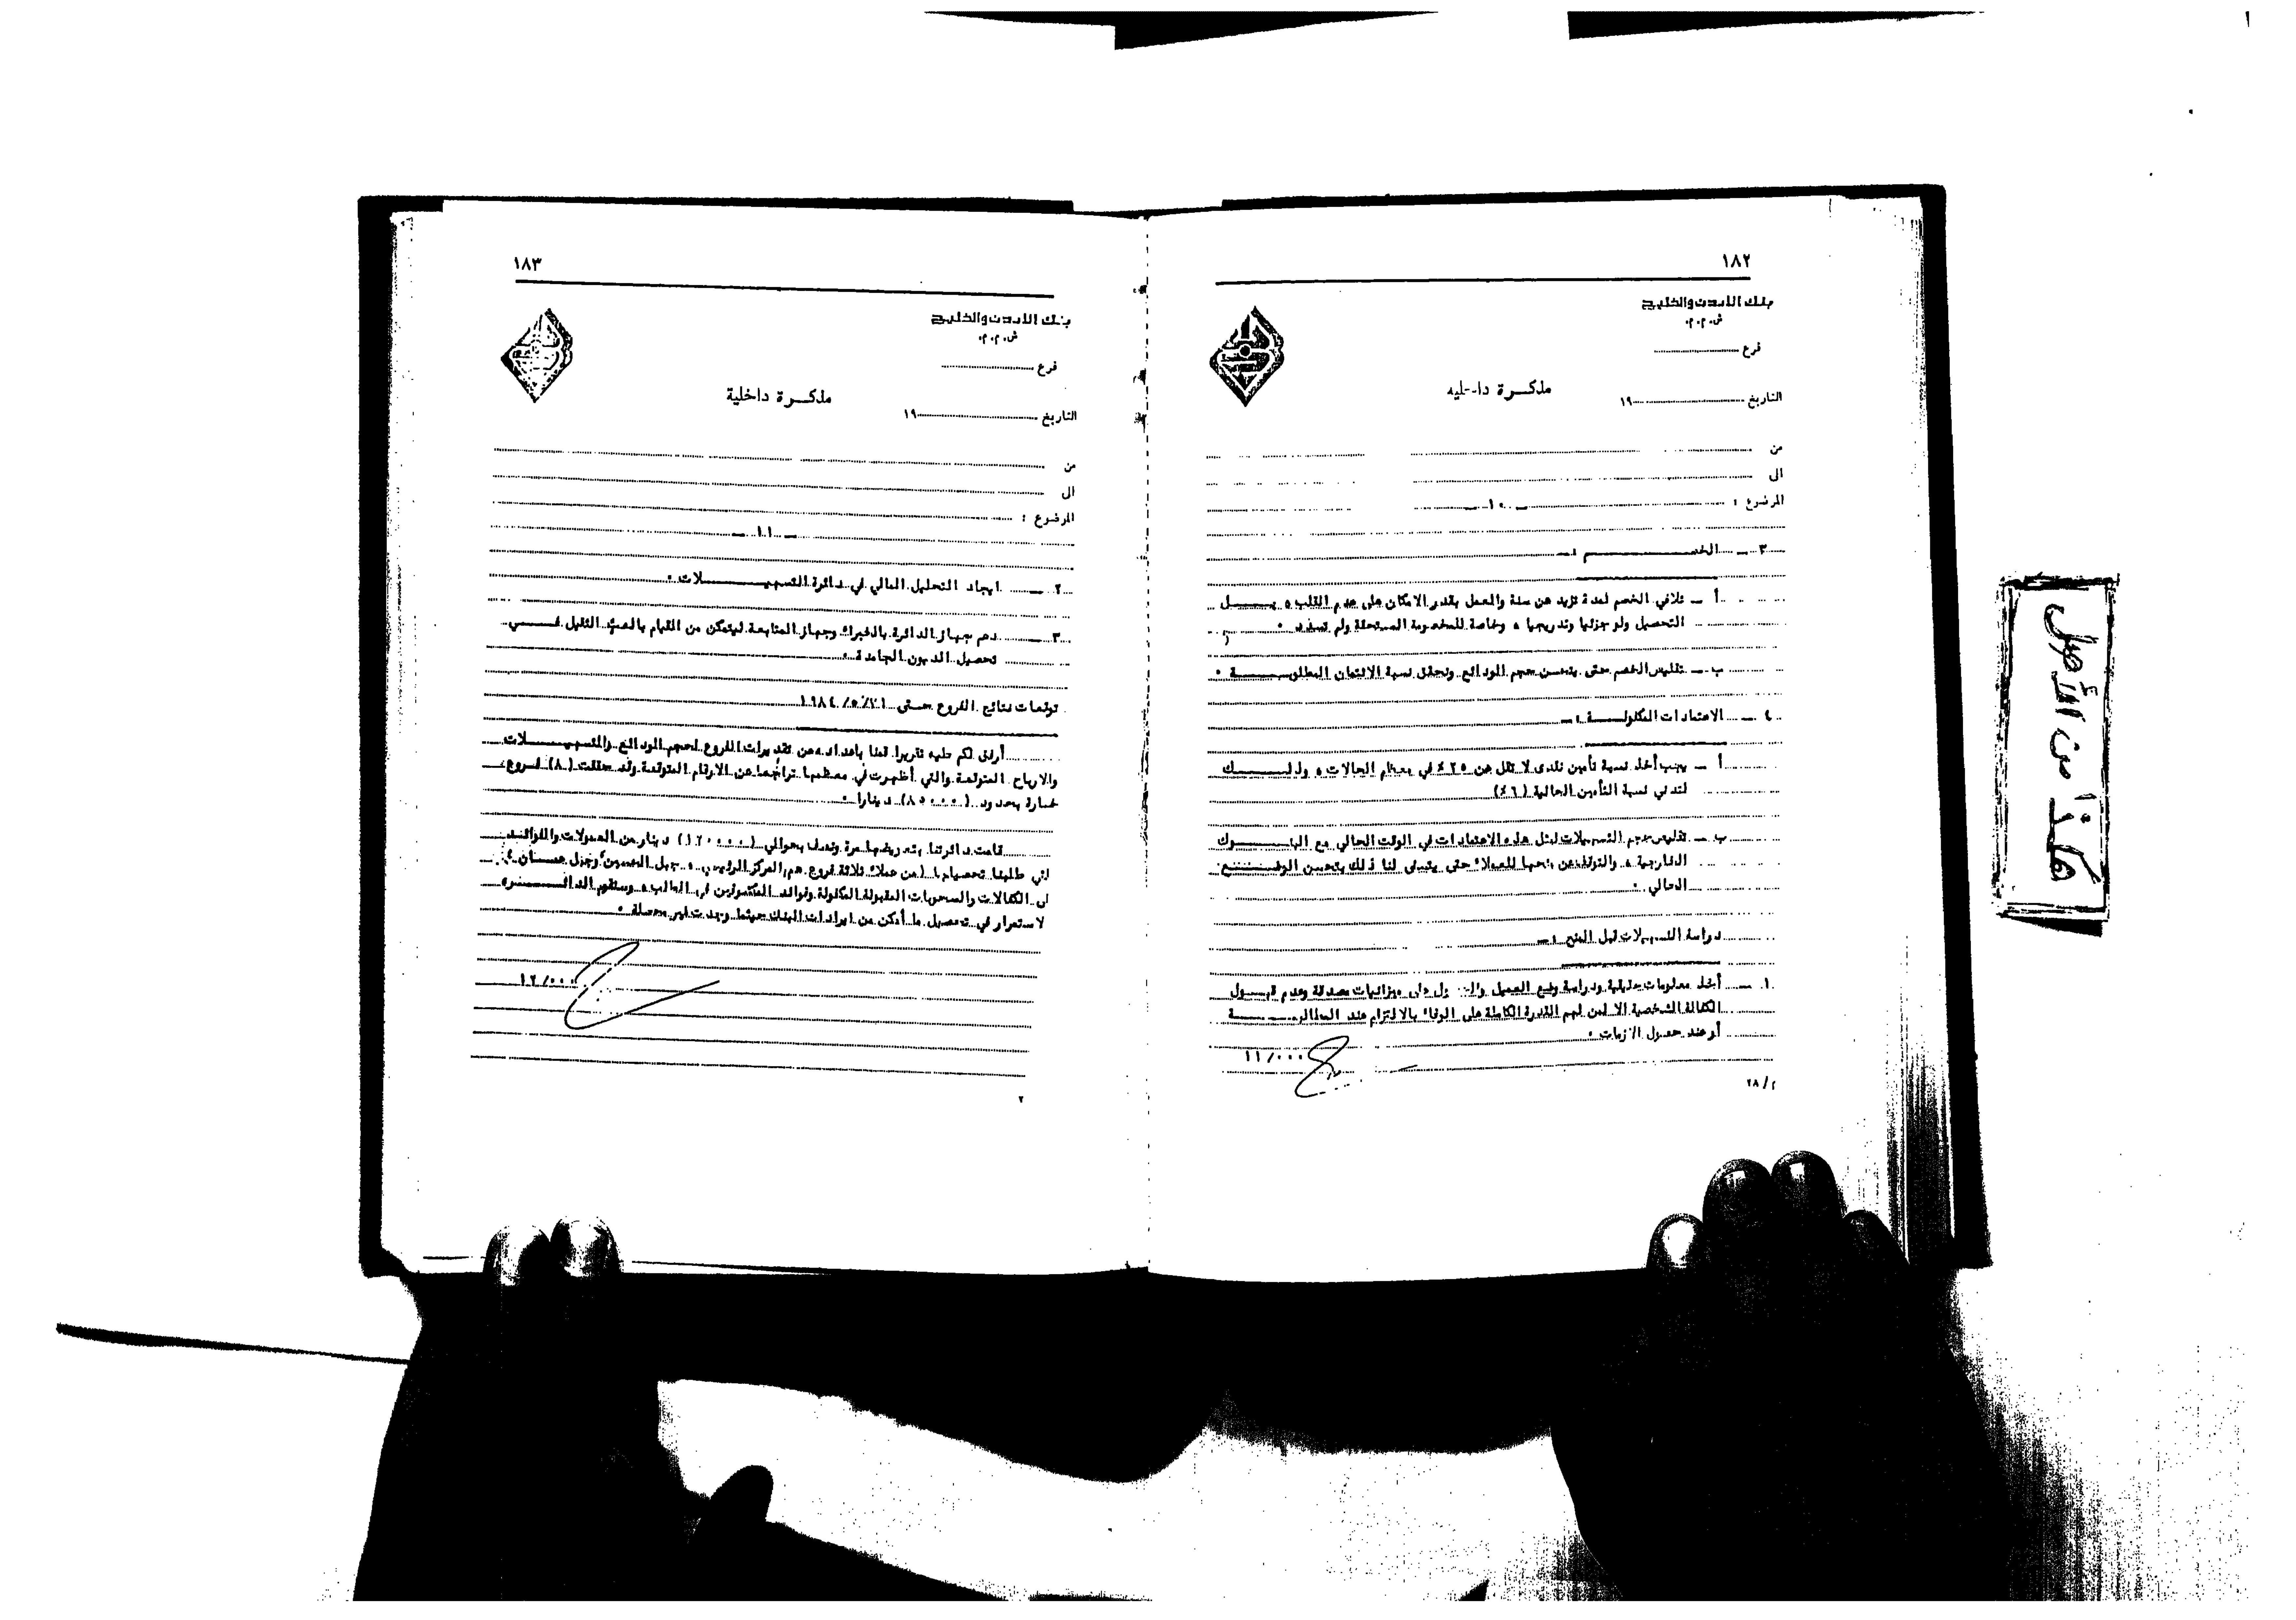 ١٨٢
بنك الأردن والخليج
ش. م. م.
فرع
مذكرة داخليه
التاريخ ١٩
من
الى
الموضوع :
ـ ١٠ ـ
٣ ـ الخصم :ـ
أ ـ تلافي الخصم لمدة تزيد عن سنة والعمل بقدر الامكان على عدم القلب ، بل
التحصيل ولو جزئيا وتدريجيا ، وخاصة للخصومة المستحقة ولم تسدد .
ب ـ تقليص الخصم حتى يتحسن حجم الودائع وتحقق نسبة الائتمان المطلوبة .
٤ ـ الاعتمادات المكفولة :ـ
أ ـ يجب أخذ نسبة تأمين نقدى لا تقل عن ٢٥٪ في معظم الحالات ، وذلك
لتدني نسبة التأمين الحالية (٦٪)
ب ـ تقليص حجم التسهيلات لمثل هذه الاعتمادات في الوقت الحالي مع البنوك
الخارجية ، والتوقف عن منحها للعملاء حتى يتسنى لنا ذلك بتحسن الوضع
الحالي .
دراسة التسهيلات قبل المنح :ـ
١ ـ أخذ معلومات حقيقية ودراسة وضع العميل والحصول على ميزانيات مصدقة وعدم قبول
الكفالة الشخصية الا لمن لهم القدرة الكاملة على الوفاء بالالتزام عند المطالبة
أو عند حصول الأزمات .
١١/٠٠٠
٢٨/م
١٨٣
بنك الأردن والخليج
ش. م. م.
فرع
مذكرة داخلية
التاريخ ١٩
من
الى
الموضوع :
ـ ١١ ـ
٢ ـ ايجاد التحليل المالي في دائرة التسهيلات .
٣ ـ دعم جهاز الدائرة بالخبراء وجهاز المتابعة ليتمكن من القيام بالعبء الثقيل في
تحصيل الديون الجامدة .
توقعات نتائج الفروع حتى ١٩٨٤/٥/٣١
أرفق لكم طيه تقريرا قمنا باعداده عن تقديرات الفروع لحجم الودائع والتسهيلات
والارباح المتوقعة والتي أظهرت في معظمها تراجعا عن الارقام المتوقعة وقد حققت (٨) فروع
خسارة بحدود (٨٥٠٠٠) دينارا .
قامت دائرتنا بتدريضها مرة ونصف بحوالي (١٢٠٠٠٠) دينار من العمولات والفوائد
لتي طلبنا تحصيلها (من عملاء ثلاثة فروع هم المركز الرئيسي ، جبل الحسين وجبل
الكفالات والسحوبات المقبولة المكفولة وفوائد المكشوفين في الغالب ، وستقوم الدائرة
لاستمرار في تحصيل ما أمكن من ايرادات البنك حيثما وجدت غير محصلة .
١٢/٠٠٠
٢
هكذا من الأصل